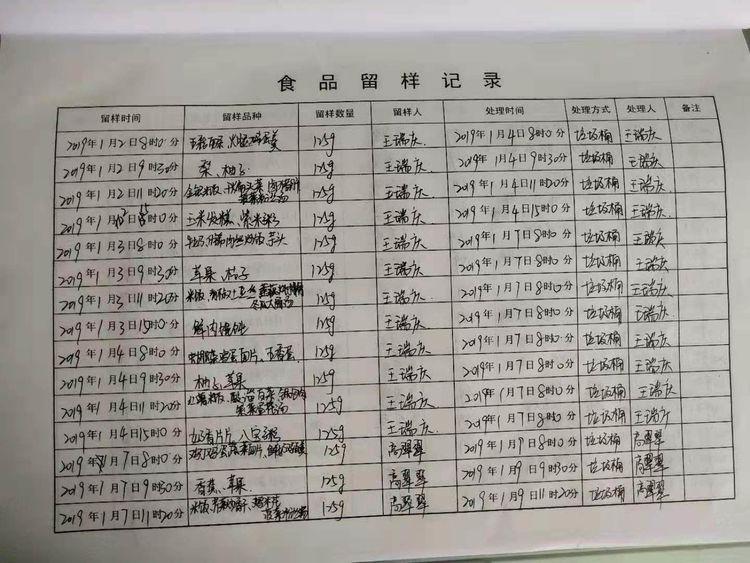 食品留样记录
留样时间 留样品种 留样数量 留样人 处理时间 处理方式 处理人 备注
2019年1月2日8时0分 125g 王瑞庆 2019年1月4日8时0分 垃圾桶 王瑞庆
2019年1月2日9时30分 梨、柚子 125g 王瑞庆 2019年1月4日9时30分 垃圾桶 王瑞庆
2019年1月2日11时20分 125g 王瑞庆 2019年1月4日11时20分 垃圾桶 王瑞庆
2019年1月 日15时0分 玉米发糕、紫米粥 125g 王瑞庆 2019年1月4日15时0分 垃圾桶 王瑞庆
2019年1月3日8时0分 芋头 125g 王瑞庆 2019年1月7日8时0分 垃圾桶 王瑞庆
2019年1月3日9时30分 苹果、桔子 125g 王瑞庆 2019年1月7日8时0分 垃圾桶 王瑞庆
2019年1月3日11时20分 米饭 125g 王瑞庆 2019年1月7日8时0分 垃圾桶 王瑞庆
2019年1月3日15时0分 鲜肉馄饨 125g 王瑞庆 2019年1月7日8时0分 垃圾桶 王瑞庆
2019年1月4日8时0分 五香蛋 125g 王瑞庆 2019年1月7日8时0分 垃圾桶 王瑞庆
2019年1月4日9时30分 柚子、苹果 125g 王瑞庆 2019年1月7日8时0分 垃圾桶 王瑞庆
2019年1月4日11时20分 125g 王瑞庆 2019年1月7日8时0分 垃圾桶 王瑞庆
2019年1月4日15时0分 奶香片片、八宝粥 125g 王瑞庆 2019年1月7日8时0分 垃圾桶 王瑞庆
2019年1月7日8时0分 125g 高翠翠 2019年1月9日8时0分 垃圾桶 高翠翠
2019年1月7日9时30分 香蕉、苹果 125g 高翠翠 2019年1月9日9时30分 垃圾桶 高翠翠
2019年1月7日11时20分 米饭 125g 高翠翠 2019年1月9日11时20分 垃圾桶 高翠翠